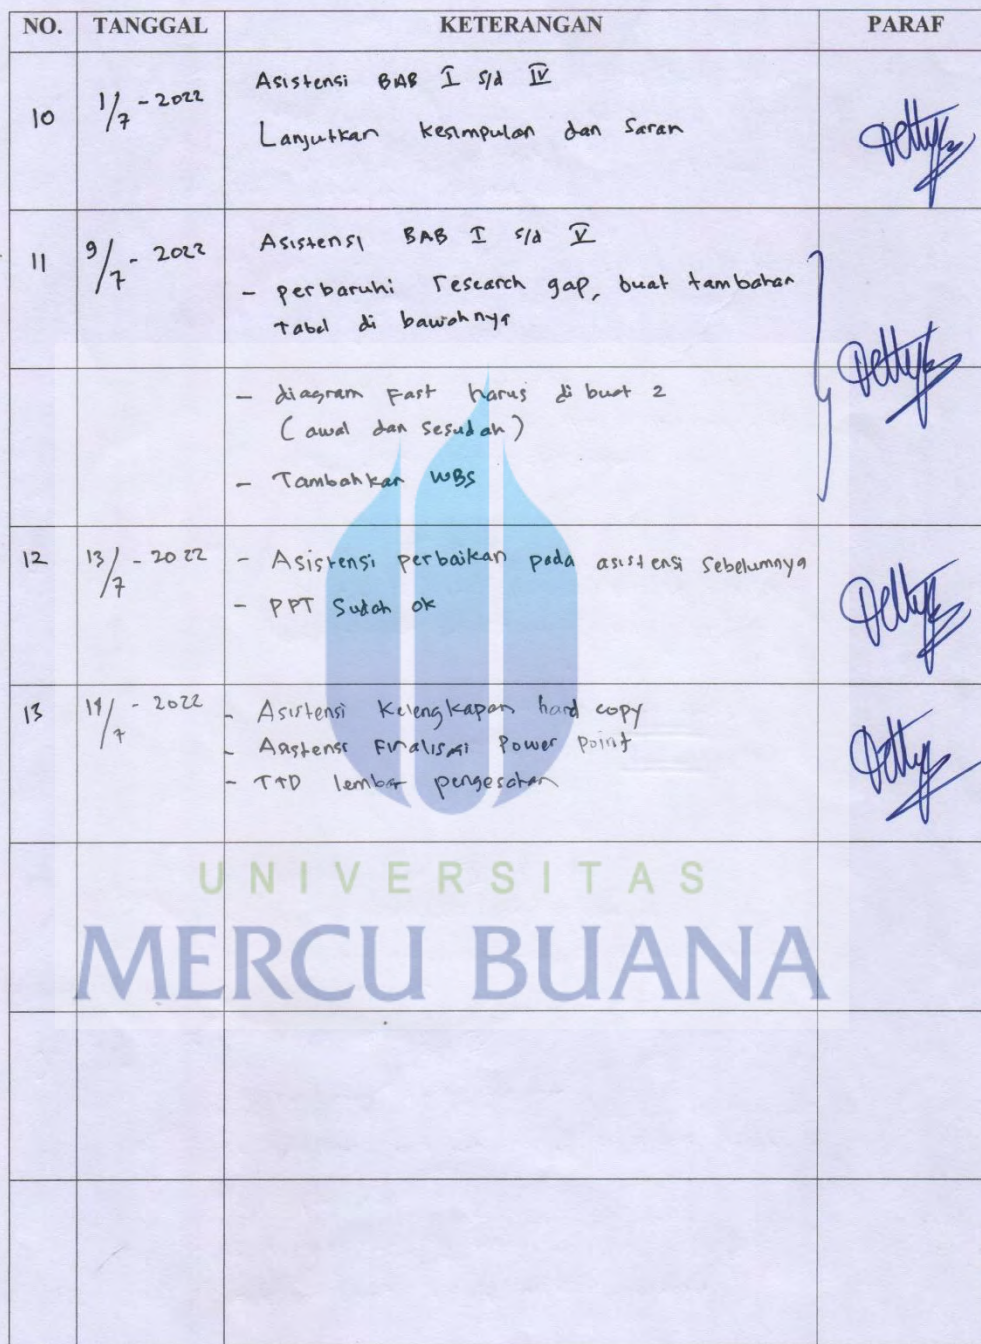 NO. TANGGAL KETERANGAN PARAF
10 1/7 - 2022 Asistensi BAB I s/d IV
Lanjutkan kesimpulan dan Saran
11 9/7 - 2022 Asistensi BAB I s/d V
- perbaruhi research gap, buat tambahan
tabel di bawahnya
- diagram Fast harus di buat 2
(awal dan sesudah)
- Tambahkan WBS
12 13/7 - 2022 - Asistensi perbaikan pada asistensi sebelumnya
- PPT Sudah ok
13 /7 - 2022 - Asistensi Kelengkapan hard copy
- Asistensi Finalisasi Power Point
- TTD lembar pengesahan
UNIVERSITAS
MERCU BUANA